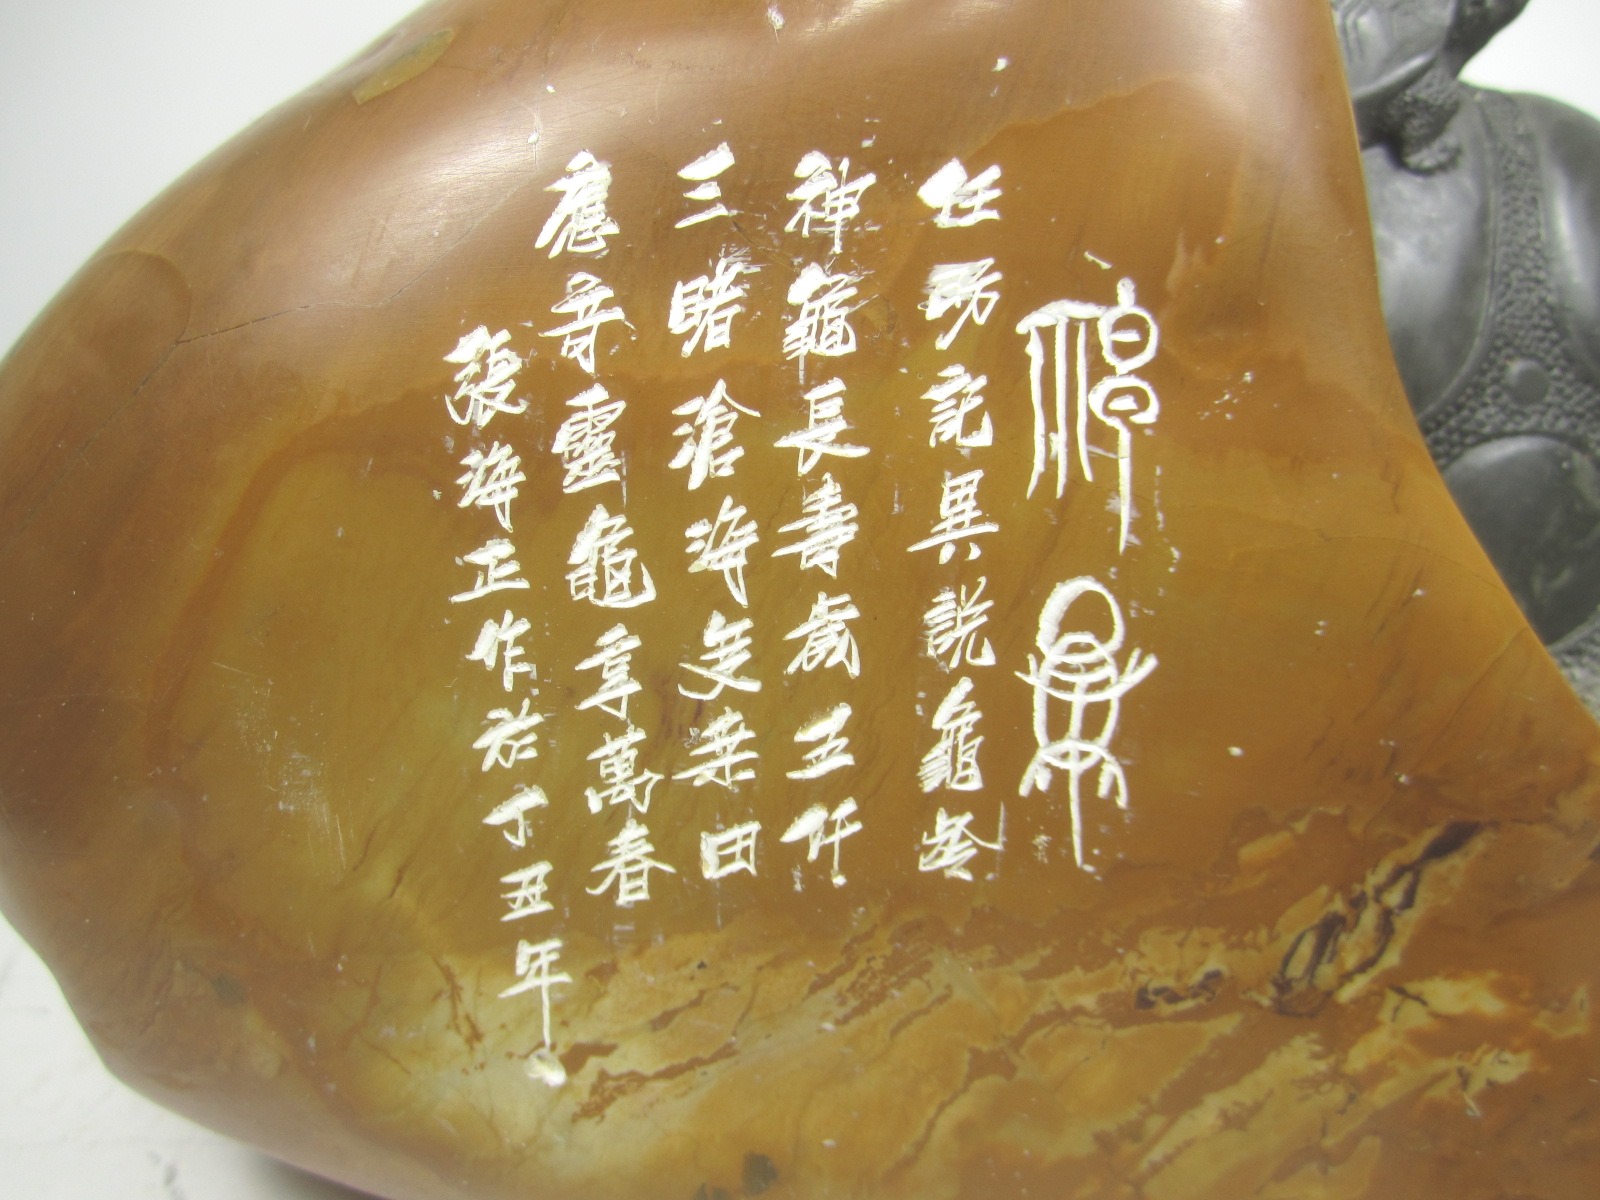 神龜
任昉記異説龜齡
神龜長壽歲五仟
三睹滄海變桒田
應音靈龜享萬春
張海正作於丁丑年